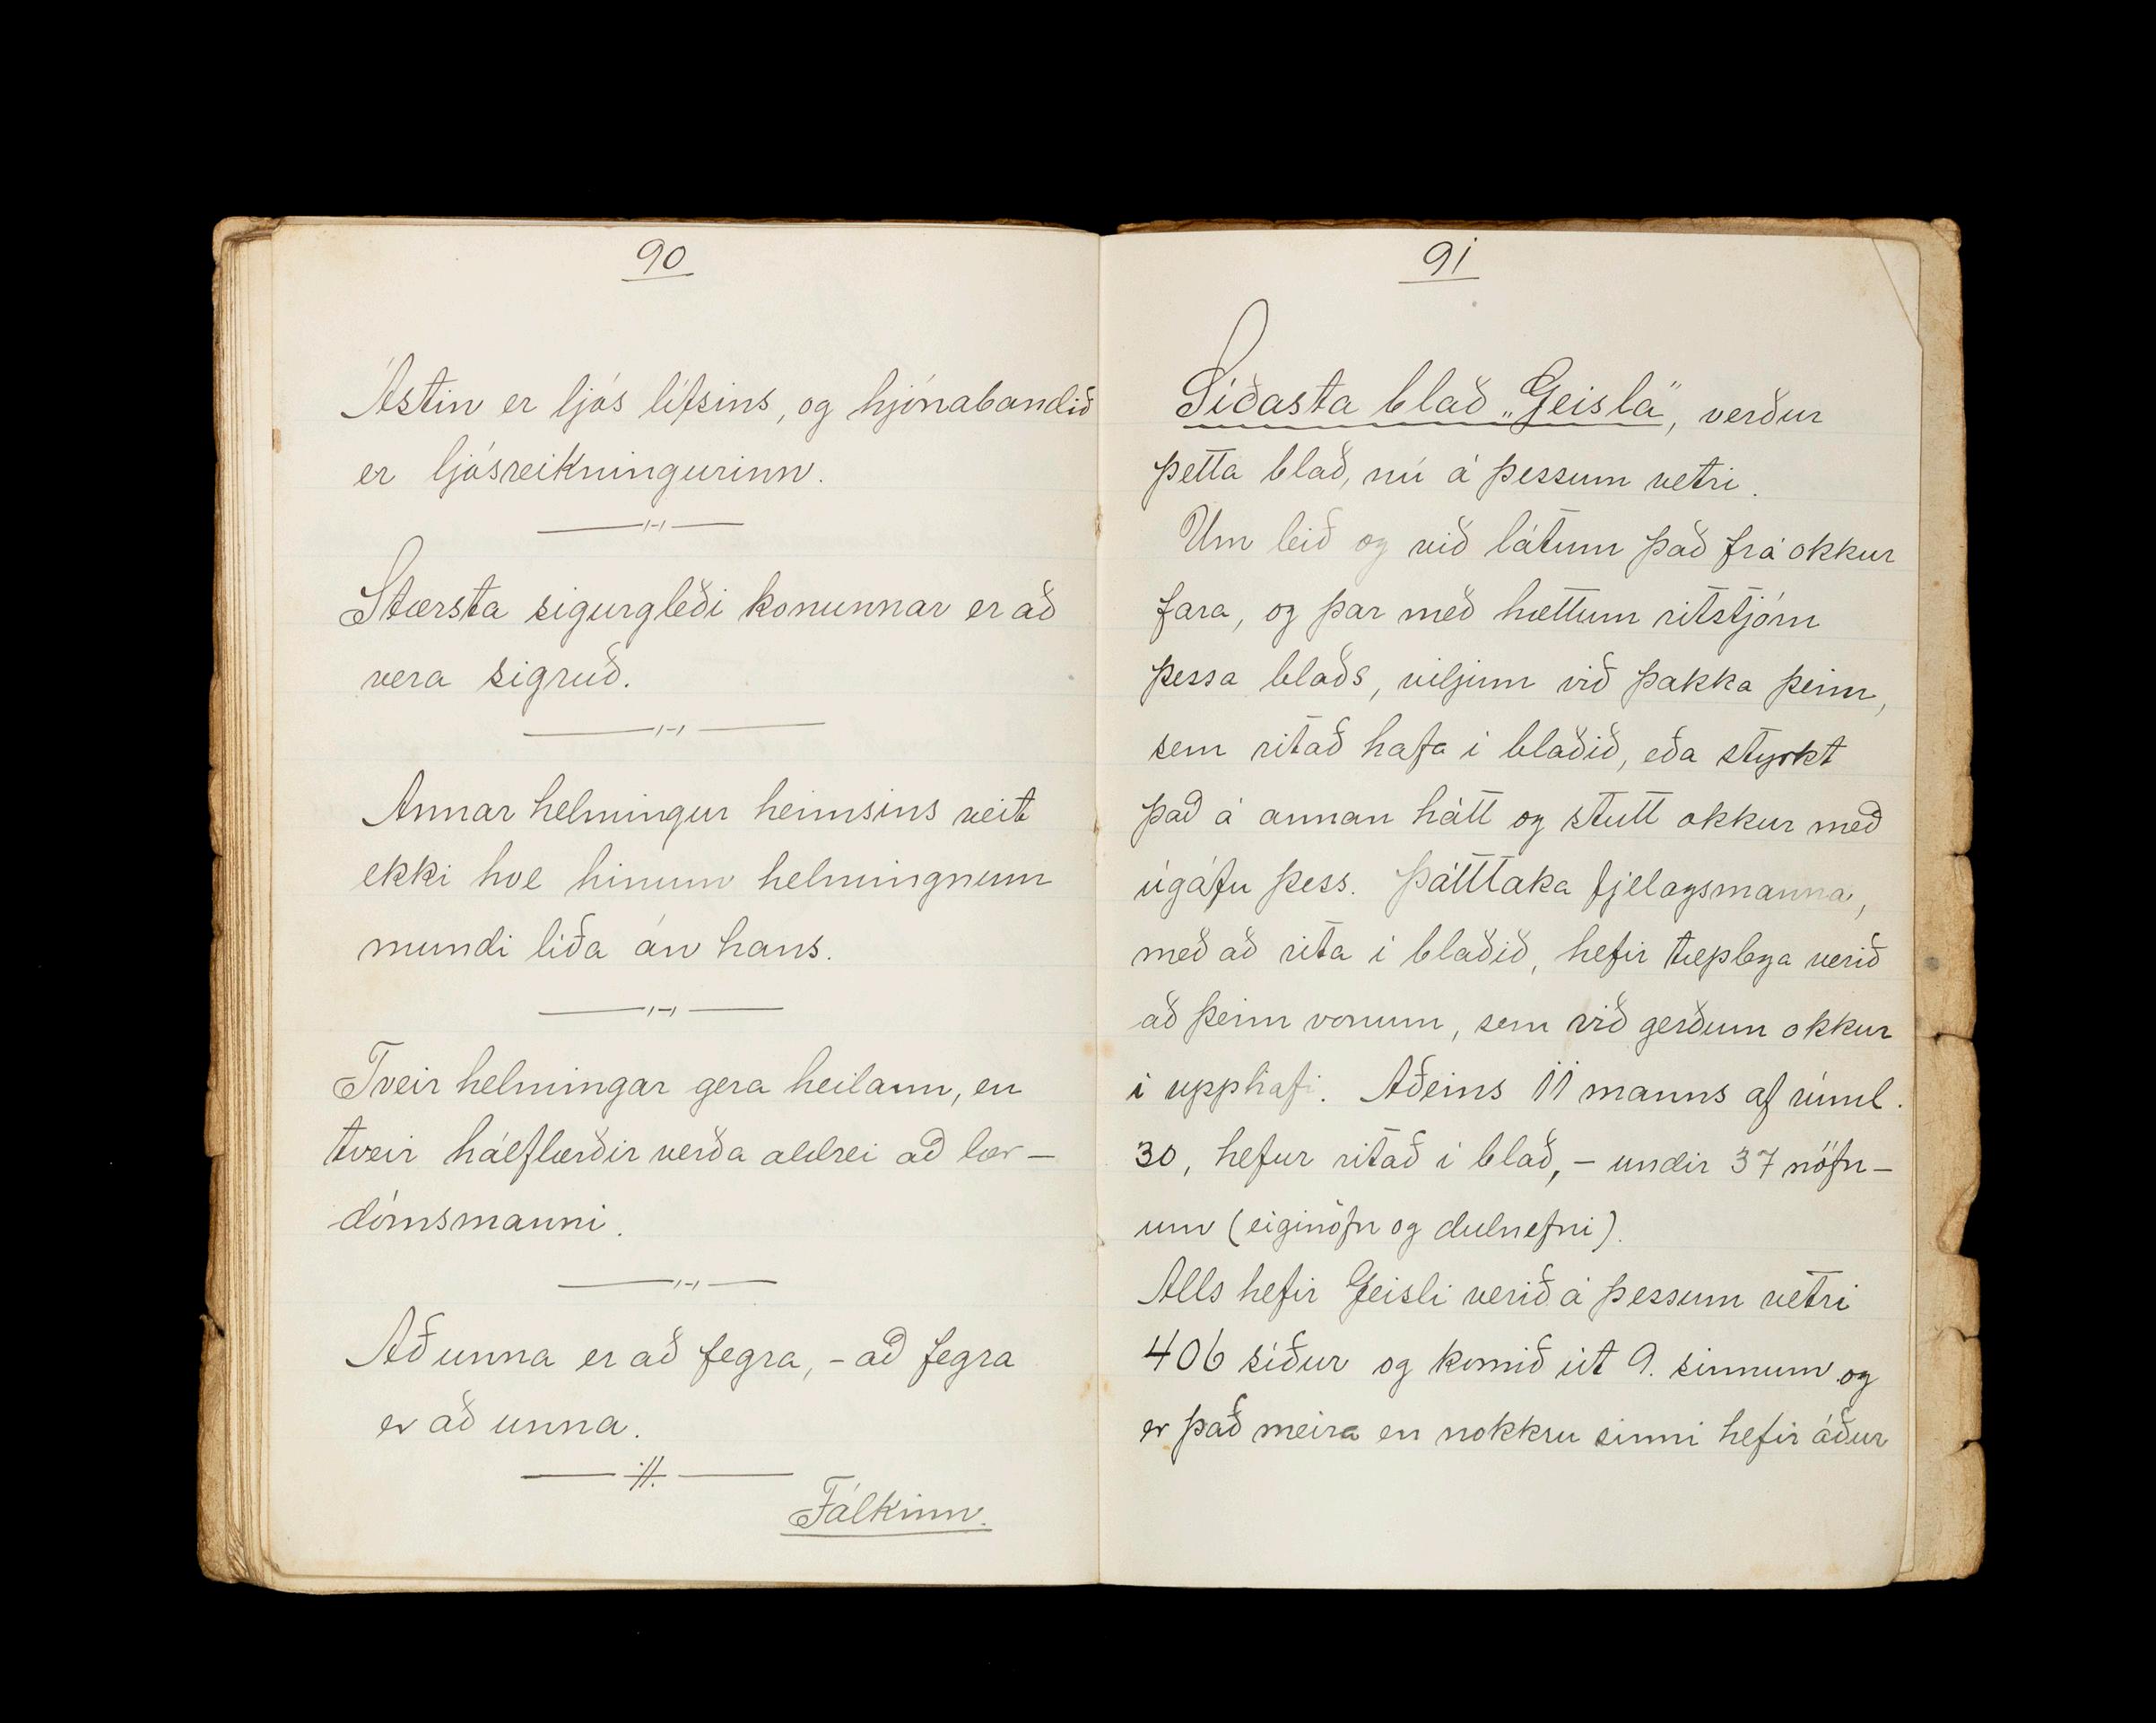 90
Ástin er ljós lífsins, og hjónabandið
er ljósreikningurinn.
Stærsta sigurgleði konunnar er að
vera sigruð.
Annar helmingur heimsins veit
ekki hve hinum helmingnum
mundi líða án hans.
Tveir helmingar gera heilann, en
tveir hálflærðir verða aldrei að lær-
dómsmanni.
Að unna er að fegra, - að fegra
er að unna.
Fálkinn.
91
Síðasta blað „Geisla", verður
þetta blað, nú á þessum vetri.
Um leið og við látum það frá okkur
fara, og þar með hættum ritstjórn
þessa blaðs, viljum við þakka þeim,
sem ritað hafa í blaðið, eða styrkt
það á annan hátt og stutt okkur með
úgáfu þess. Þátttaka fjelagsmanna,
með að rita í blaðið, hefir tæplega verið
að þeim vonum, sem við gerðum okkur
í upphafi. Aðeins 11 manns af rúml.
30, hefur ritað í blað, - undir 37 nöfn-
um (eiginöfn og dulnefni).
Alls hefir Geisli verið á þessum vetri
406 síður og komið út 9. sinnum og
er það meira en nokkru sinni hefir áður